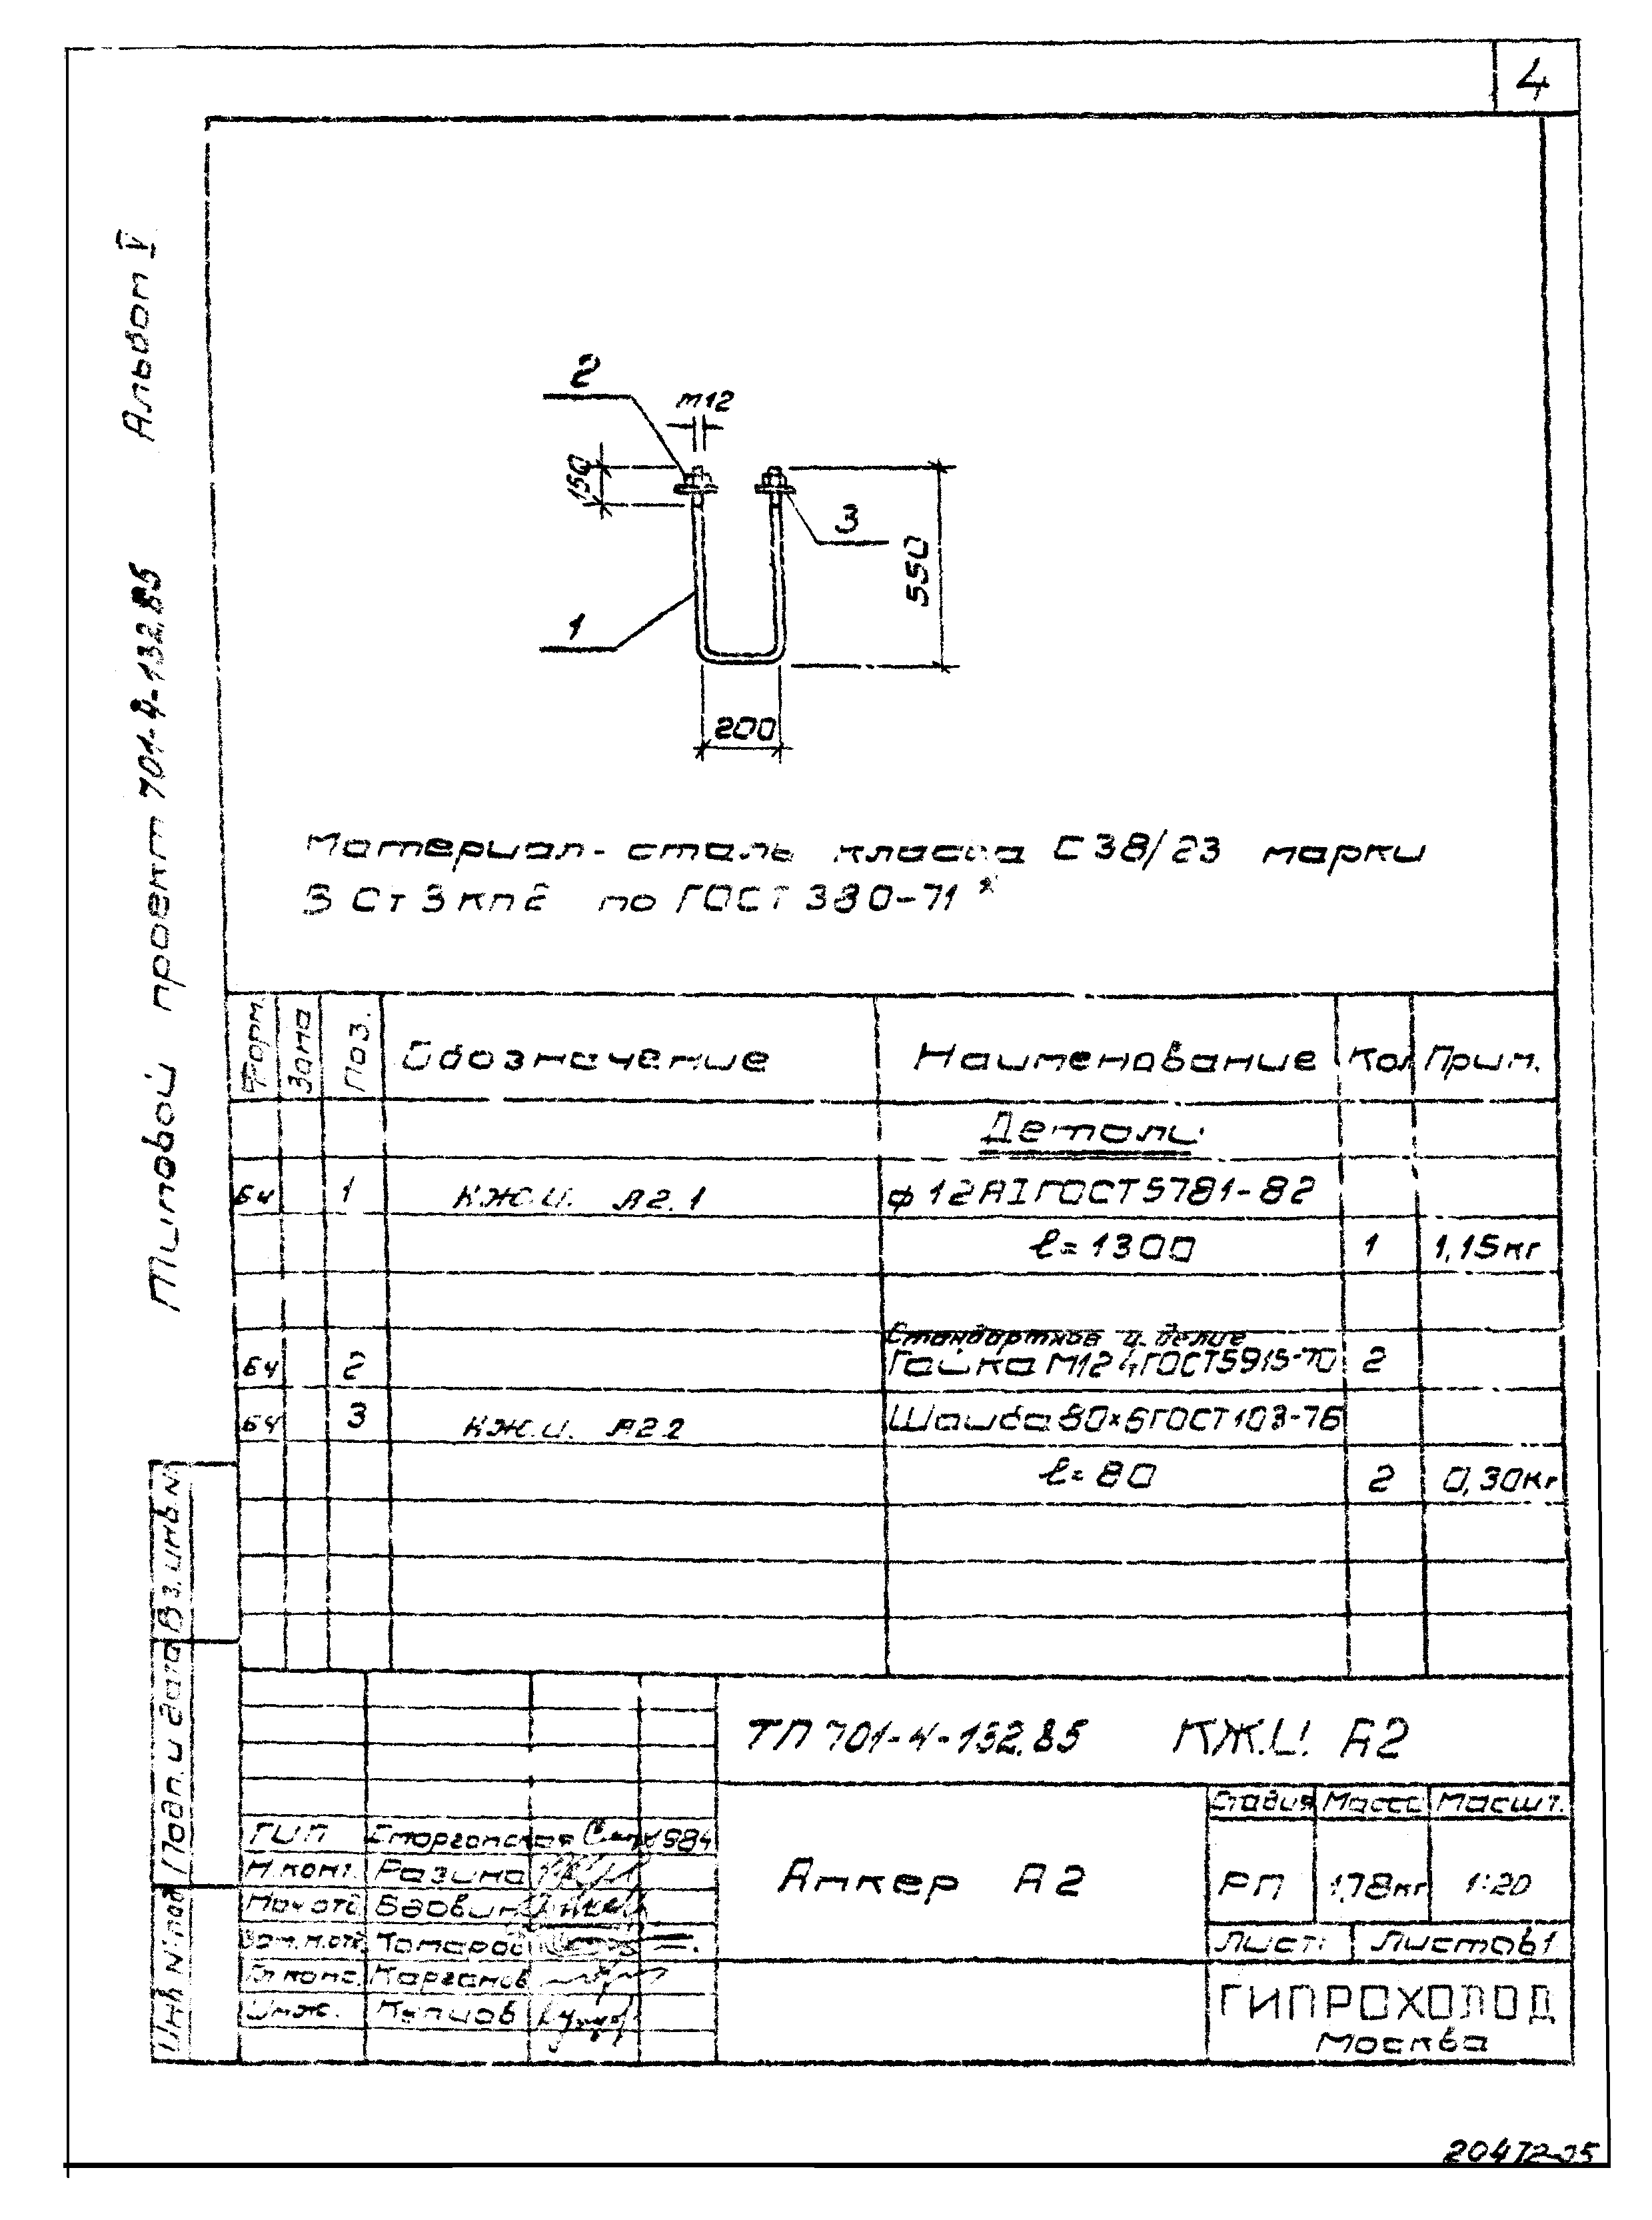 4
Альбом V
Типовой проект 701-4-132.85
2
м12
150
3
550
1
200
Материал- сталь класса С38/23 марки
ВСт3кп2 по ГОСТ 380-71*
Форм. Зона Поз. Обозначение Наименование Кол Прим.
Детали
Бч 1 КЖ.И. А2.1 ф12АI ГОСТ 5781-82
ℓ=1300 1 1,15кг
Стандартное изделие
Бч 2 Гайка М12 4 ГОСТ 5915-70 2
Бч 3 КЖ.И. А2.2 Шайба 80×6 ГОСТ 103-76
ℓ=80 2 0,30кг
Вз. инв. N
Подп. и дата
Инв N под
ТП 701-4-132.85 КЖ.И. А2
Стадия Масса Масшт.
ГИП 1984
Анкер А2
РП 1,78кг 1:20
Н.конт. Разина
Нач отд
Зам.н.отд. Комаров
Лист Листов 1
Гл конс. Карганов
Инж. Купцов
ГИПРОХОЛОД
Москва
20472-05